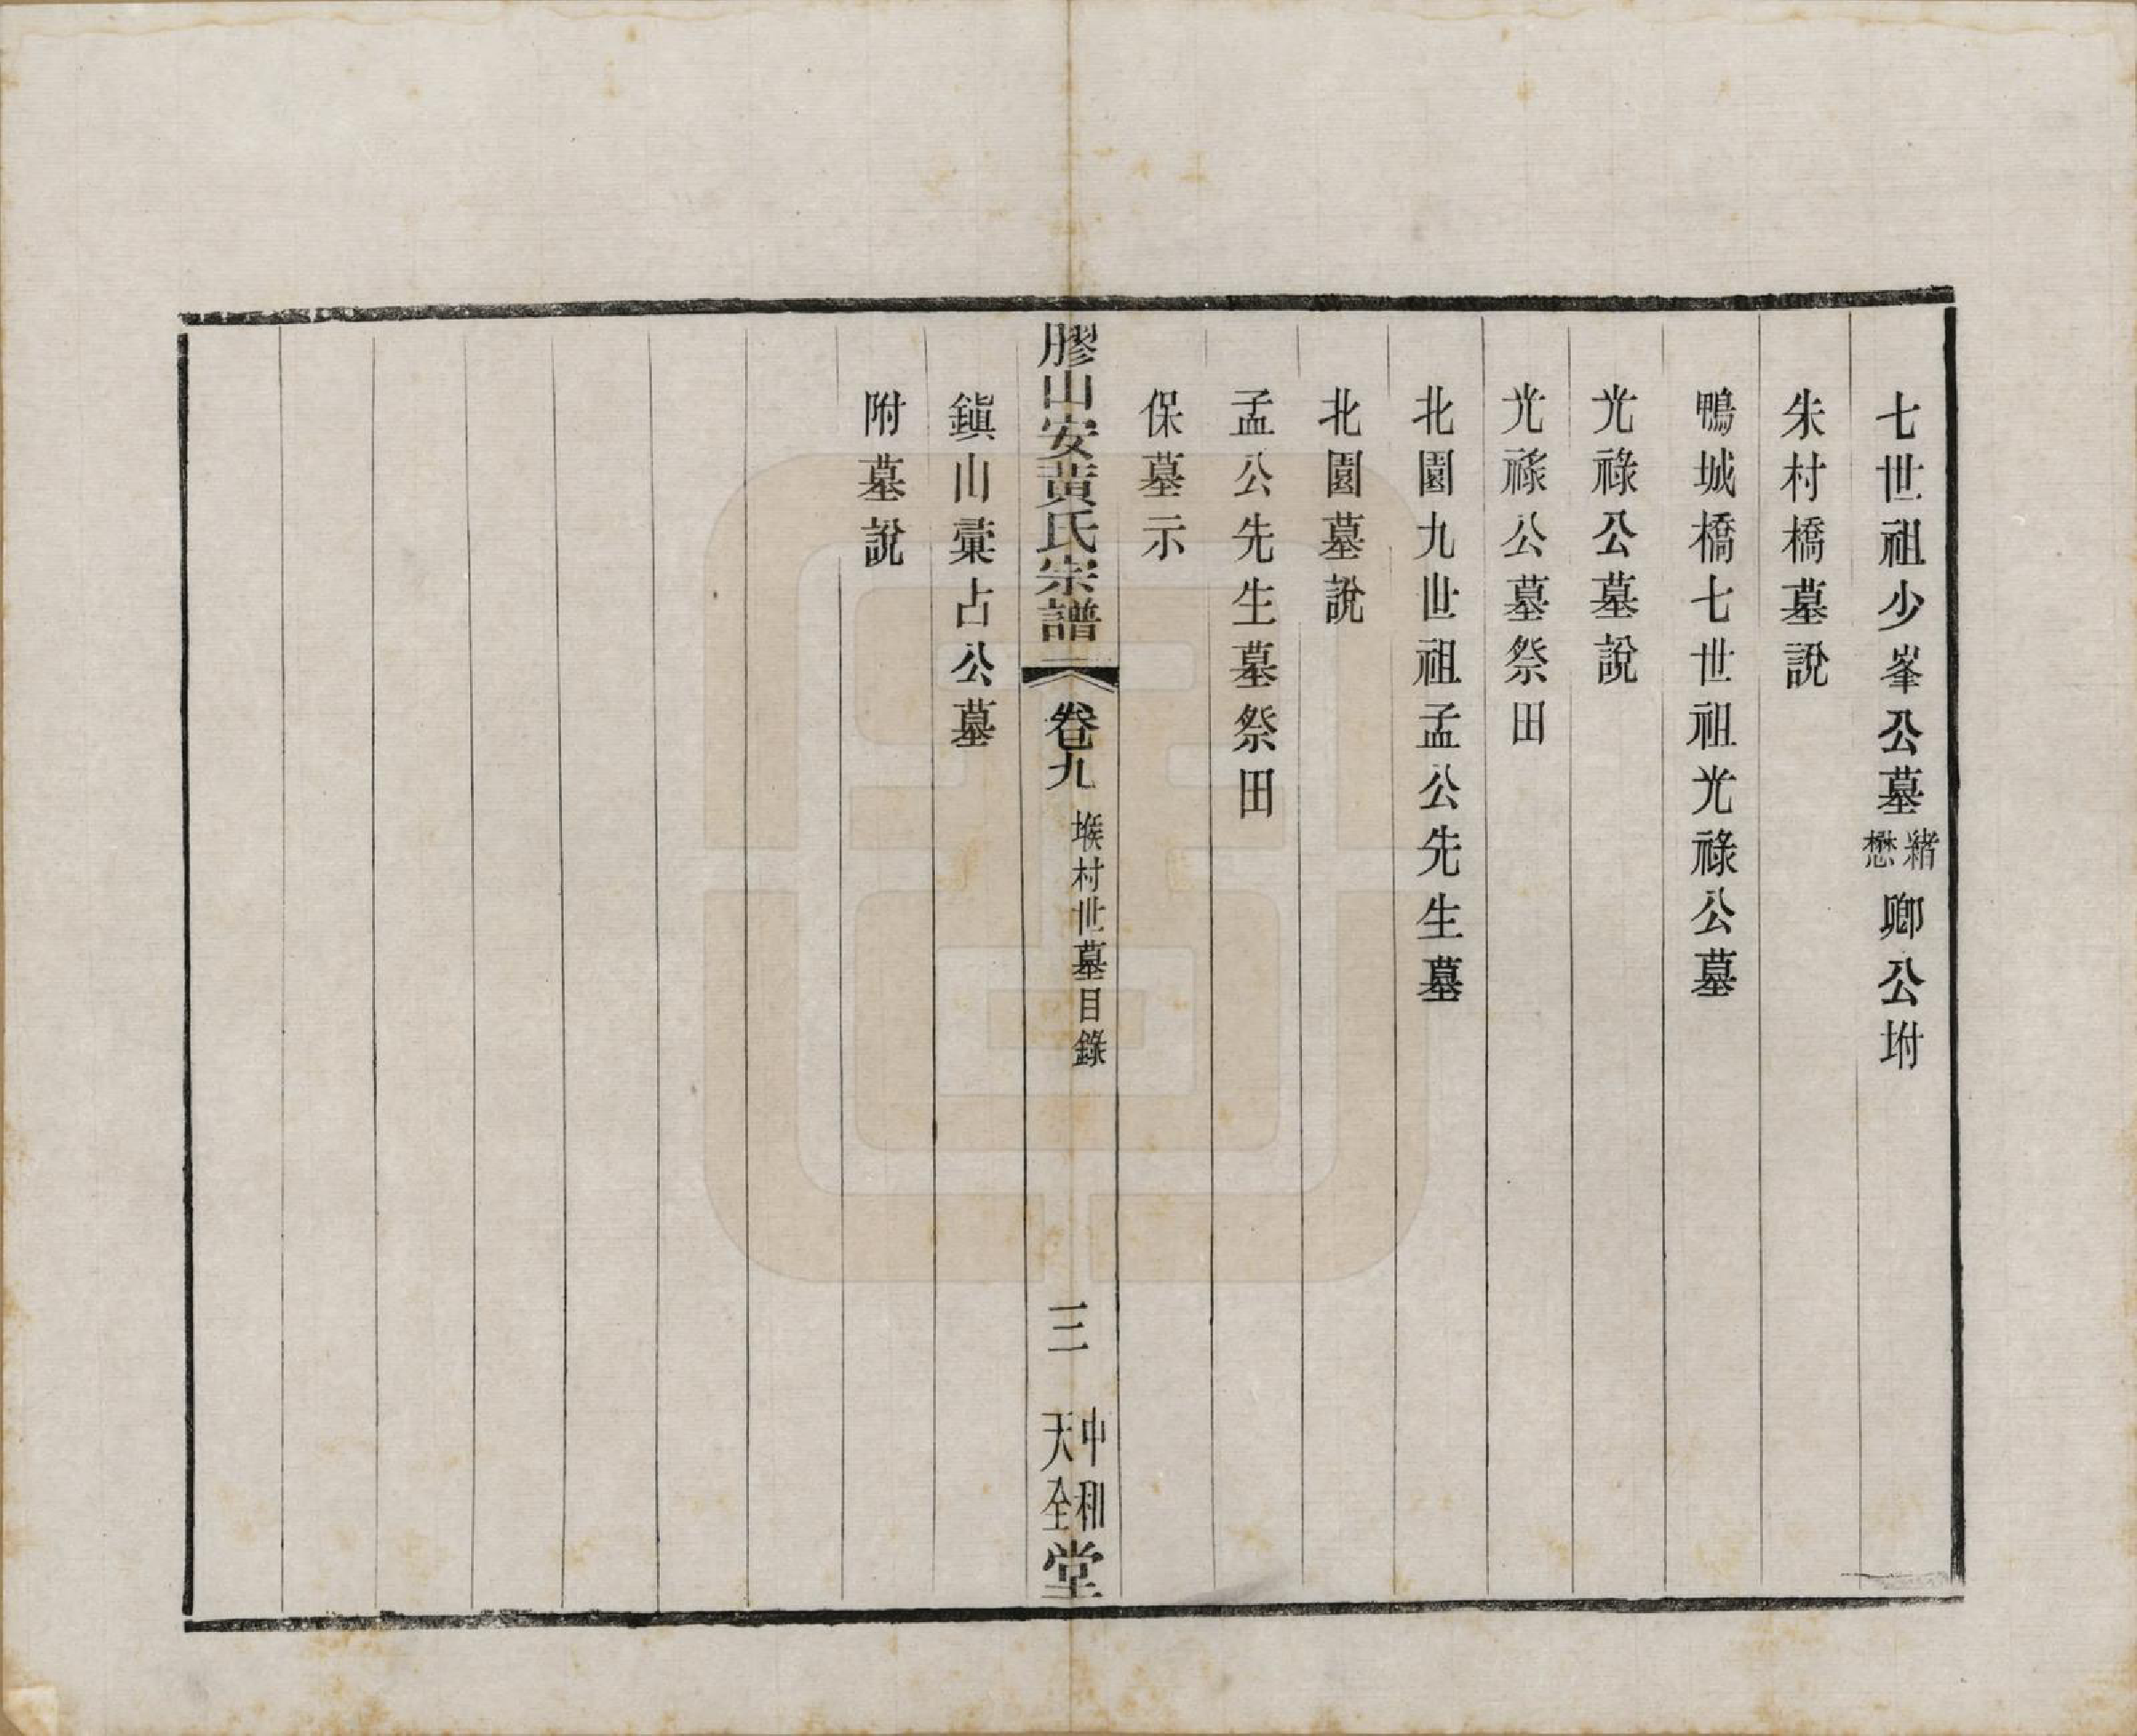 七世祖少峯公墓緒懋卿公坿
朱村橋墓說
鴨城橋七世祖光祿公墓
光祿公墓說
光祿公墓祭田
北園九世祖孟公先生墓
北園墓說
孟公先生墓祭田
保墓示
膠山安黃氏宗譜 卷九 堠村世墓目錄 三 中和天全堂
鎮山㯱占公墓
附墓說